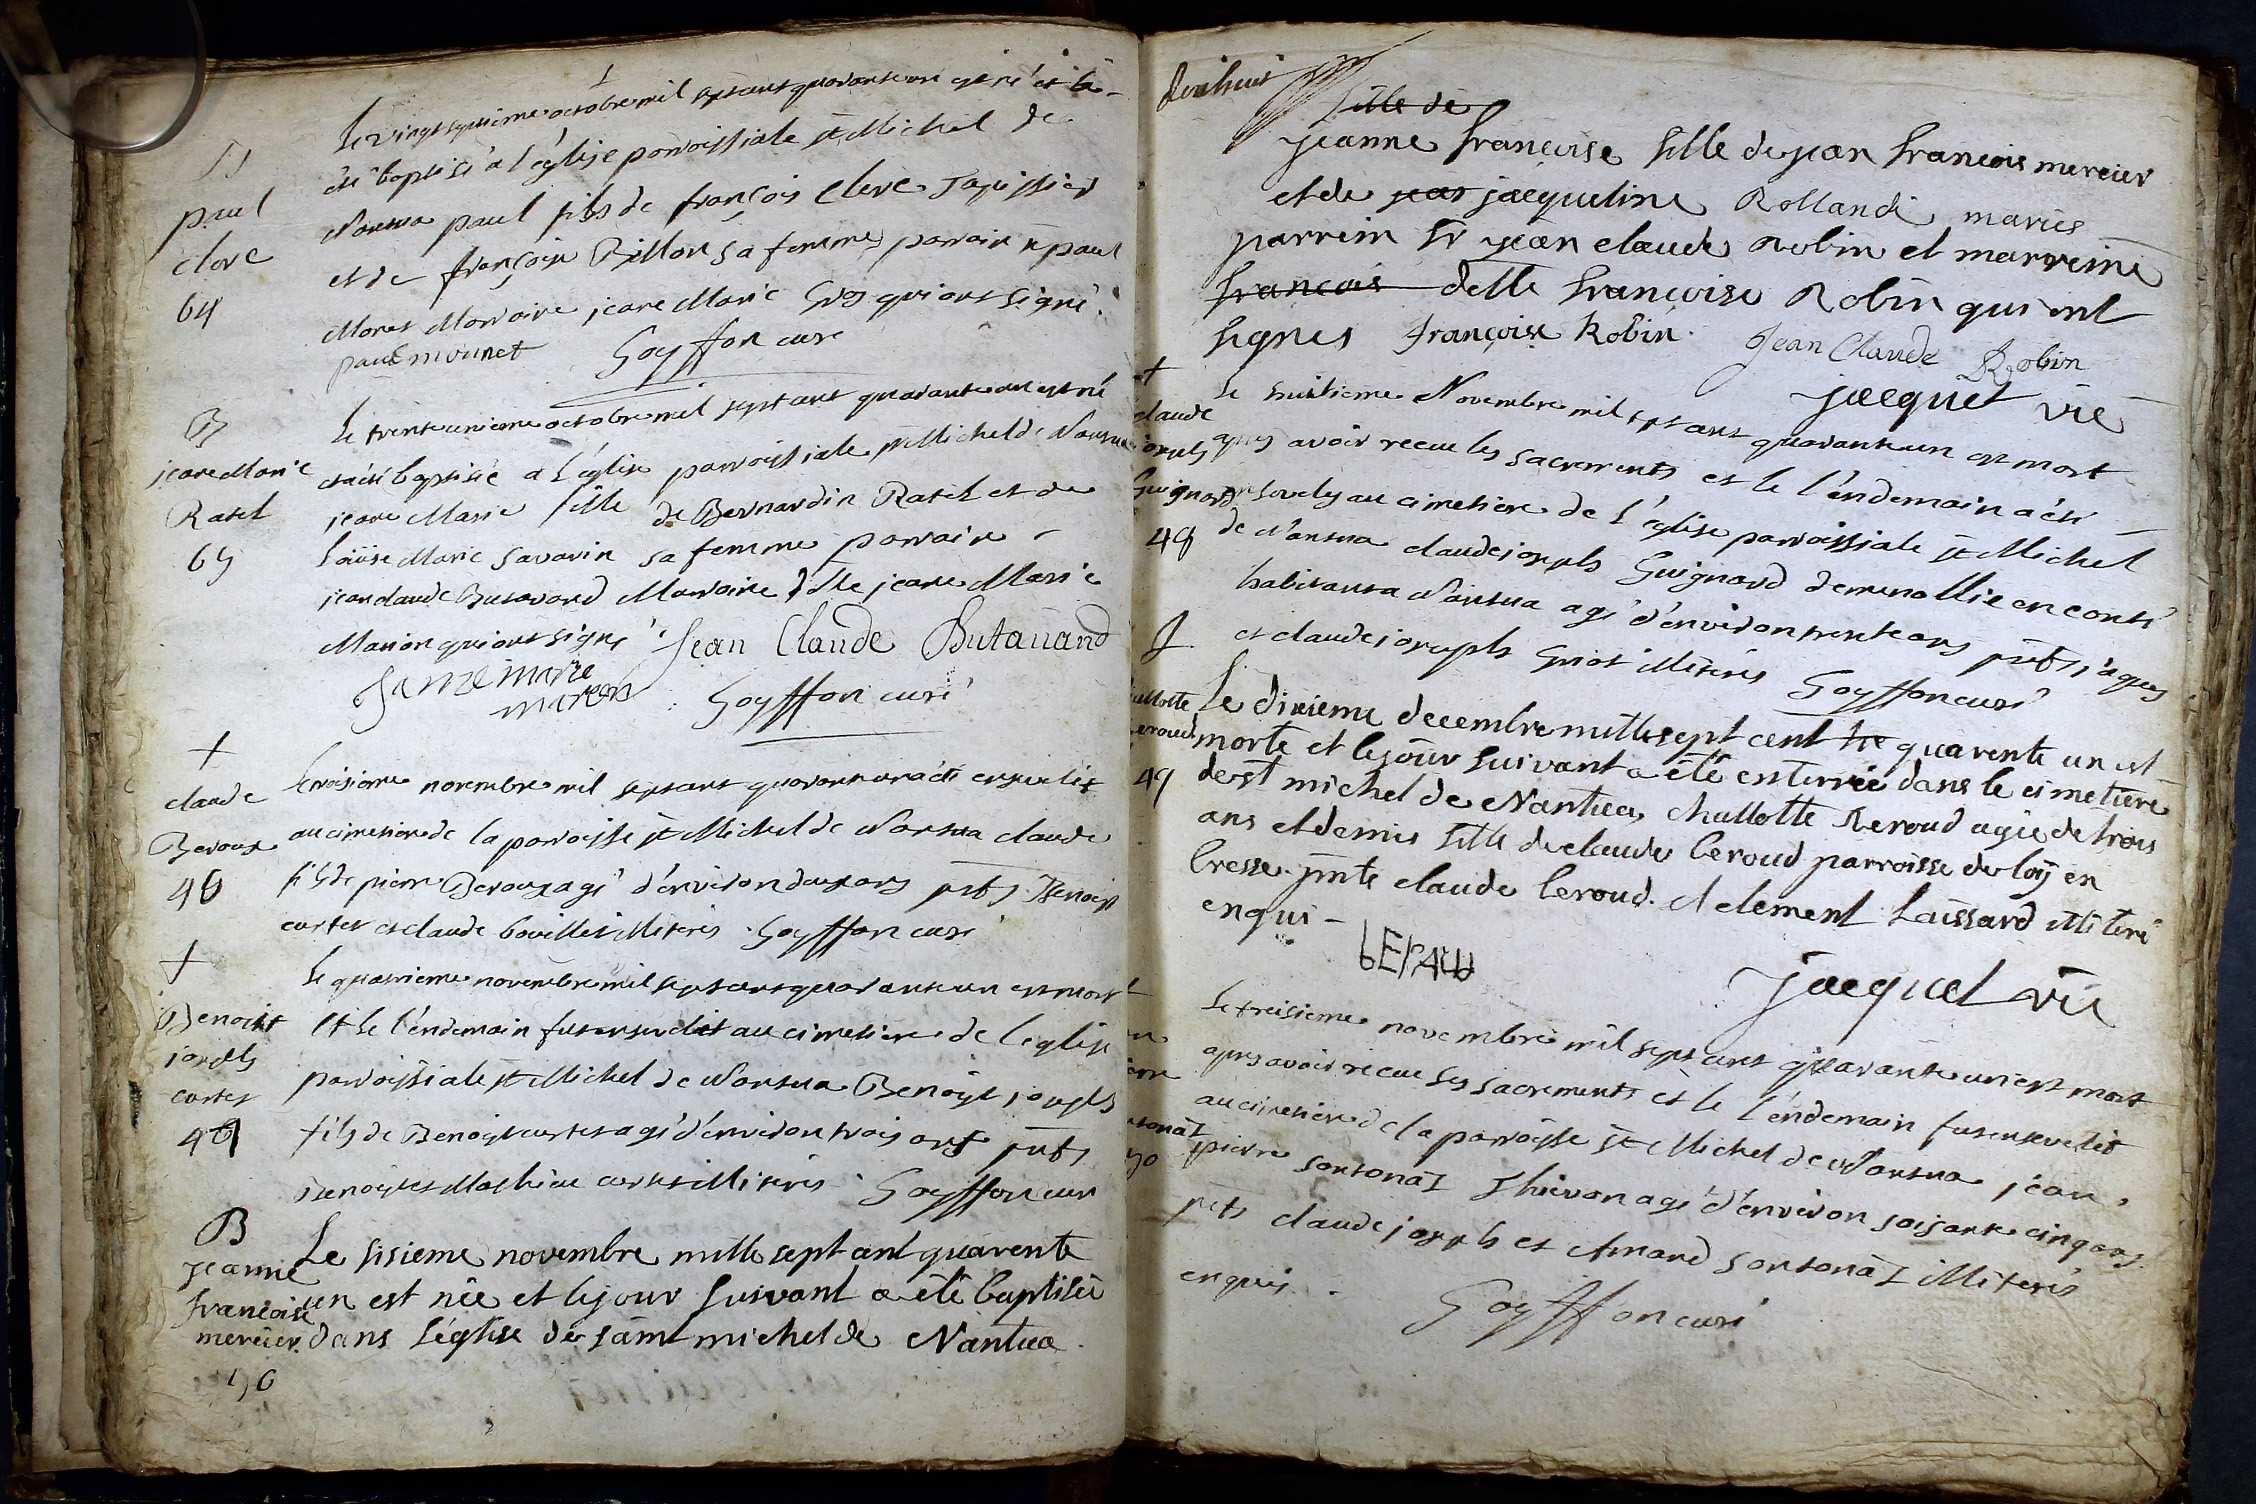 B
paul
clerc
64
Le vingt septieme octobre mil sept cent quarante un est né et a
été baptisé a l'église parroissiale st Michel de
Nantua paul fils de françois Clerc Tapissier
et de françoise Billon sa femme parrain sr paul
Monet Marraine jeane Marie Gros qui ont signé.
paul mounet Goyffon curé
B
jeane Marie
Ratel
65
Le trente unieme octobre mil sept cent quarante un est né
et a été baptisée a l'église parroissiale st Michel de Nantua
jeane Marie fille de Bernardin Ratel et de
Loüise Marie Savarin sa femme parrain
jean claude Butavard Marraine dlle jeane Marie
Marion qui ont signé Jean Claude Butauand
Janne marie
marion Goyffon curé
+
claude
Beroux
46
Le troisieme novembre mil sept cent quarante un a été ensevelit
au cimetiere de la parroisse st Michel de Nantua claude
fils de pierre Beroux agé d'environ deux ans pnts Benoist
curtet et claude bouillet illiterés. Goyffon curé
+
Benoist
joseph
curtet
47
Le quatrieme novembre mil sept cent quarante un est mort
et le l'endemain fut ensevelit au cimetiere de l'eglise
parroissiale st Michel de Nantua Benoist joseph
fils de Benoist curtet agé d'environ trois ans pnts
Benoist et Mathieu curtet illiterés. Goyffon curé
B
jeanne
francoise
mercier
Le sisieme novembre mille sept cent quarente
un est née et le jour suivant a été baptisée
dans l'église de saint michel de Nantua.
dixhuit
fille de
jeanne francoise fille de jean francois mercier
et de jean jacqueline Rollandé mariés
parrein sr jean claude Robin et marreine
francois delle francoise Robin qui ont
signes françoise Robin. Jean Claude Robin
jacquet vic
+
claude
joseph
Guignard
48
Le huitieme Novembre mil sept cent quarante un est mort
apres avoir recue les sacrements et le l'endemain a été
ensevely au cimetiere de l'église parroissiale st Michel
de Nantua claude joseph Guignard en conté
habitant a Nantua agé d'environ trente ans pnts jaques
et claude joseph illiterés Goyffon curé
Le dixieme decembre mille sept cent tre quarente un est
morte et le jour suivant a été enterrée dans le cimetiere
de st michel de Nantua, challotte Beroud agée de trois
ans et demis fille de claude beroud parroisse de loÿ en
bresse. pnts claude beroud. et clement Laissard illiteré
enquis -
49
bErAu
jacquet vic
50
Le treisieme novembre mil sept cent quarante un est mort
apres avoir recue les sacrements et le l'endemain fut ensevelit
au cimetiere de la parroisse st Michel de Nantua jean
pierre sontonaz Thievon agé d'environ soisante cinq ans
pnts claude joseph et Amard sontonaz illiterés
enquis. Goyffon curé